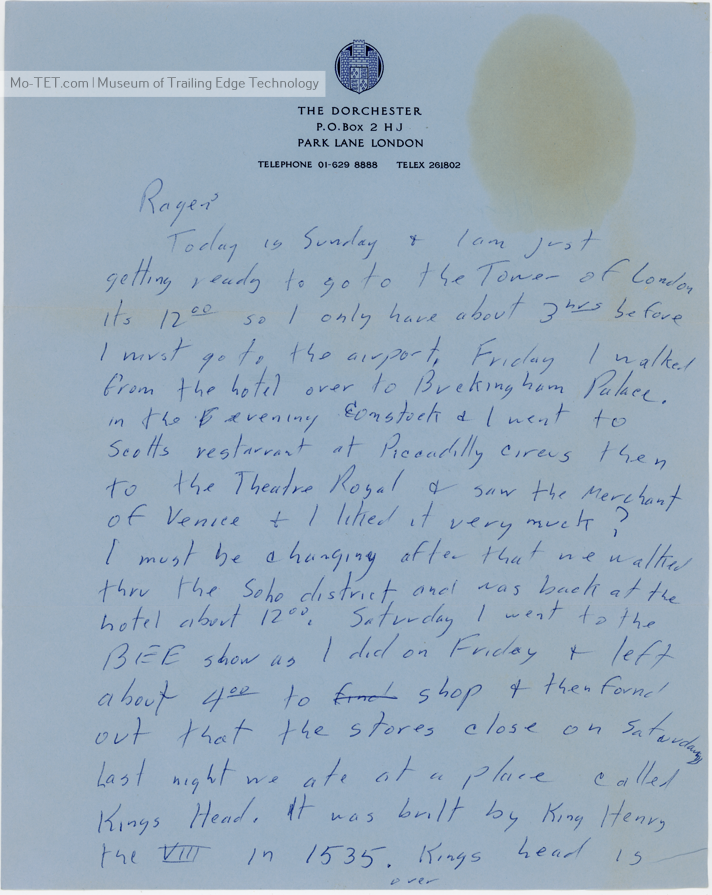 Mo-TET.com | Museum of Trailing Edge Technology
THE DORCHESTER
P.O.Box 2 HJ
PARK LANE LONDON
TELEPHONE 01-629 8888 TELEX 261802
Today is Sunday & I am just
getting ready to go to the Tower of London
its 12⁰⁰ so I only have about 3 hrs before
I must go to the airport. Friday I walked
from the hotel over to Buckingham Palace.
in the evening Comstock & I went to
Scotts restarrant at Piccadilly circus then
to the Theatre Royal & saw the Merchant
of Venice & I liked it very much?
I must be changing after that we walked
thru the Soho district and was back at the
hotel about 12⁰⁰. Saturday I went to the
BEE show as I did on Friday & left
about 4⁰⁰ to find shop & then found
out that the stores close on Saturday
Last night we ate at a place called
Kings Head. It was built by King Henry
the VIII in 1535. Kings head is
over